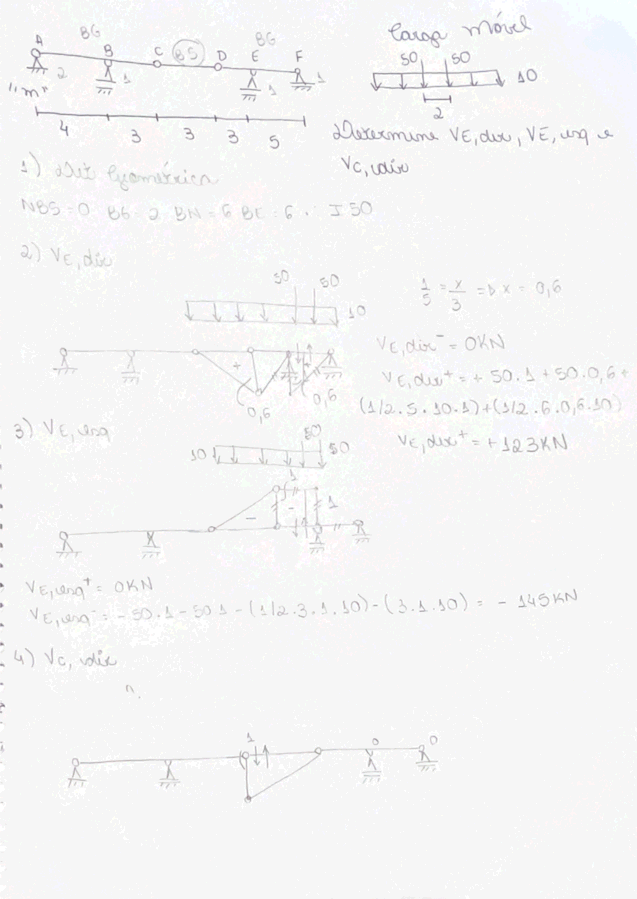 BG BS BG
Carga móvel
A B C D E F
50 50
2 1 1 1
10
2
"m"
4 3 3 3 5
Determine VE,dir, VE,esq e
VC,dir
1) Det Geométrica
NBS = 0 BG = 2 BN = 6 BE = 6 ∴ ISO
2) VE, dir
50 50
10
1/5 = x/3 => x = 0,6
+
0,6 0,6
VE,dir⁻ = 0KN
VE,dir⁺ = + 50.1 + 50.0,6 +
(1/2.5.10.1)+(1/2.6.0,6.10)
VE,dir⁺ = +123KN
3) VE, esq
50
10 50
1
- - 1
VE,esq⁺ = 0KN
VE,esq⁻ = - 50.1 - 50.1 - (1/2.3.1.10) - (3.1.10) = - 145KN
4) VC, dir
1 0 0